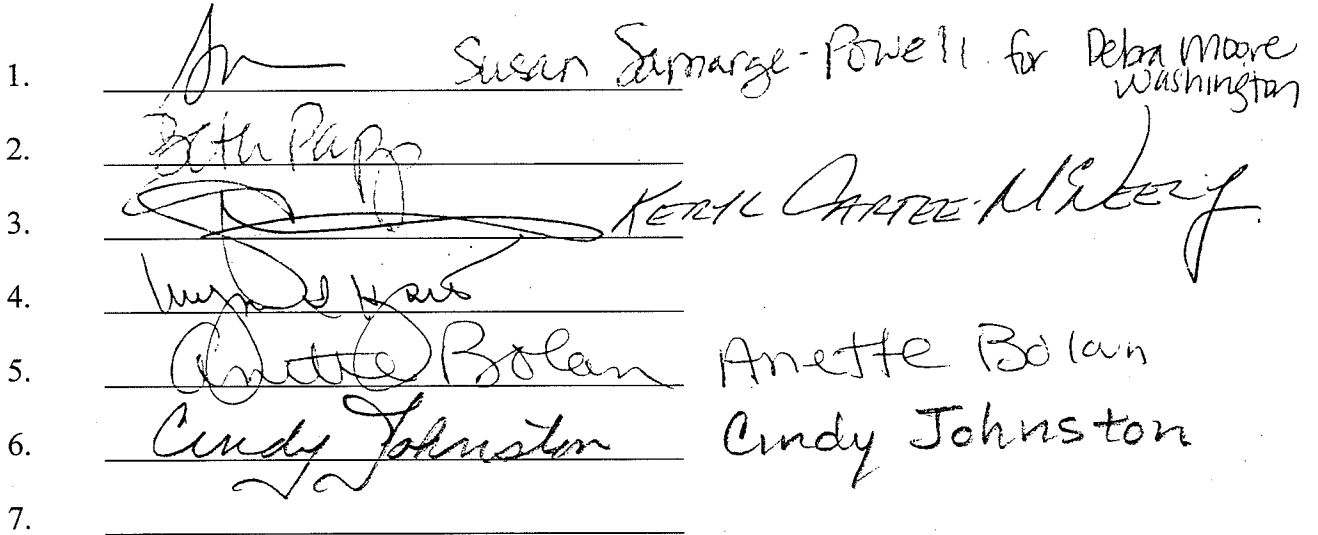 1. Susan Samarge-Powell for Debra Moore
Washington
2. Beth Papp
3. KERYL CARTEE-MCNEELY
4.
5. Anette Bolan Anette Bolan
6. Cindy Johnston Cindy Johnston
7.